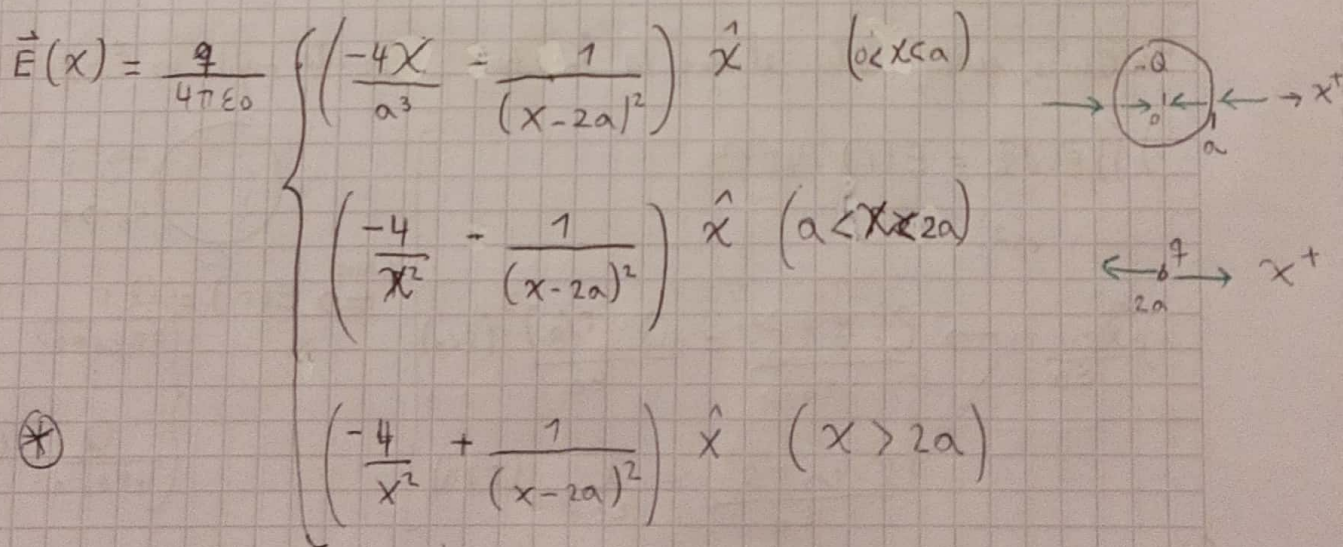 E⃗(x) = q/(4πε₀) { ( -4x/a³ - 1/(x-2a)² ) x̂ (0<x<a)
( -4/x² - 1/(x-2a)² ) x̂ (a<x<2a)
⊛ ( -4/x² + 1/(x-2a)² ) x̂ (x>2a)
-Q
0
a
x⁺
q
2a
x⁺